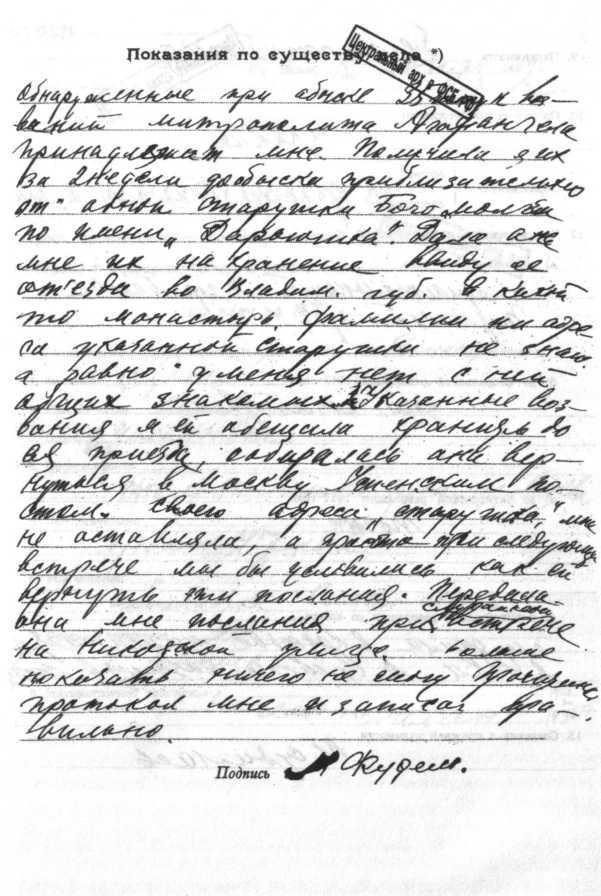 Показания по существу дела *)
Центральный арх в ФСБ
обнаруженные при обыске 25 штук воз-
ваний митрополита Агафангела
принадлежат мне. Получила я их
за 2 недели до обыска приблизительно
от одной старушки богомолки
по имени „Дарьюшка". Дала она
мне их на хранение ввиду ее
отъезда во Владим. губ. в какой
то монастырь, фамилии ни адре
са указанной старушки не знаю
а равно у меня нет с ней
общих знакомых. Указанные воз-
вания я ей обещала хранить до
ея приезда, собиралась она вер-
нуться в Москву Успенским по
стом. Своего адреса старушка мне
не оставляла, а просто при следующей
встрече мы бы условились как ей
вернуть эти послания. Передала
она мне послания при случайной встрече
на Никольской улице. Больше
показать ничего не могу Прочитан
протокол мне и записан пра-
вильно.
Подпись